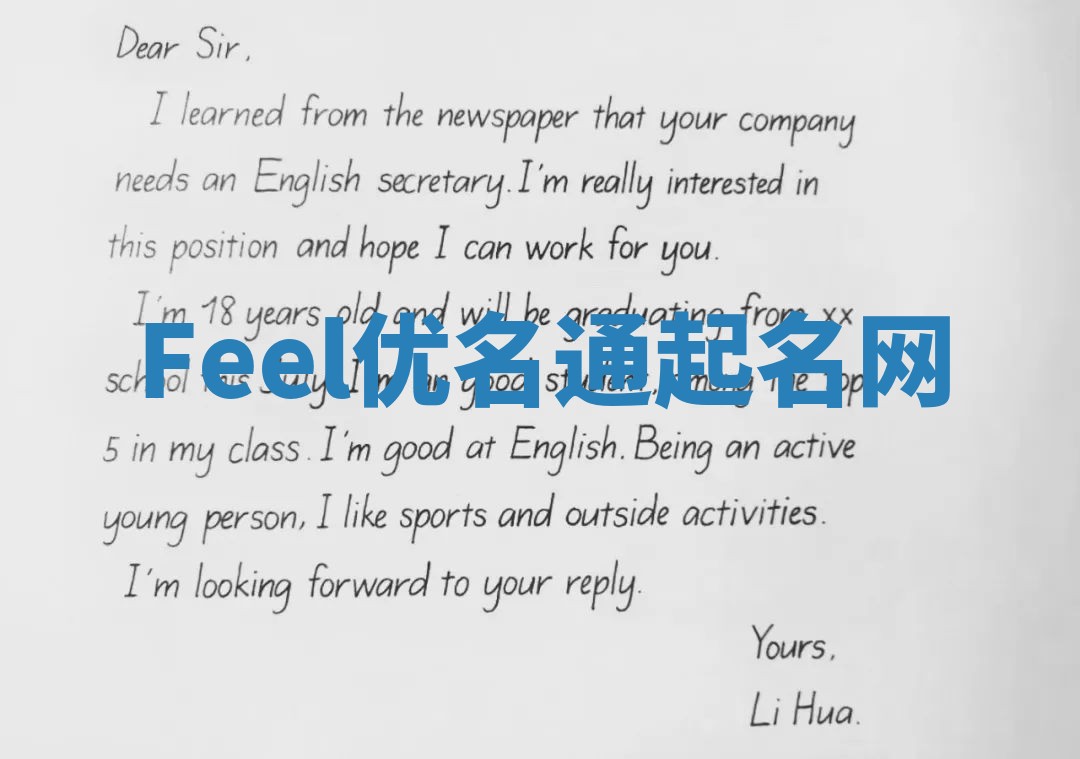 Dear Sir,
I learned from the newspaper that your company
needs an English secretary. I'm really interested in
this position and hope I can work for you.
I'm 18 years old and will be graduating from xx
Feel优名通起名网
school this July. I'm an good student, among the top
5 in my class. I'm good at English. Being an active
young person, I like sports and outside activities.
I'm looking forward to your reply.
Yours,
Li Hua.